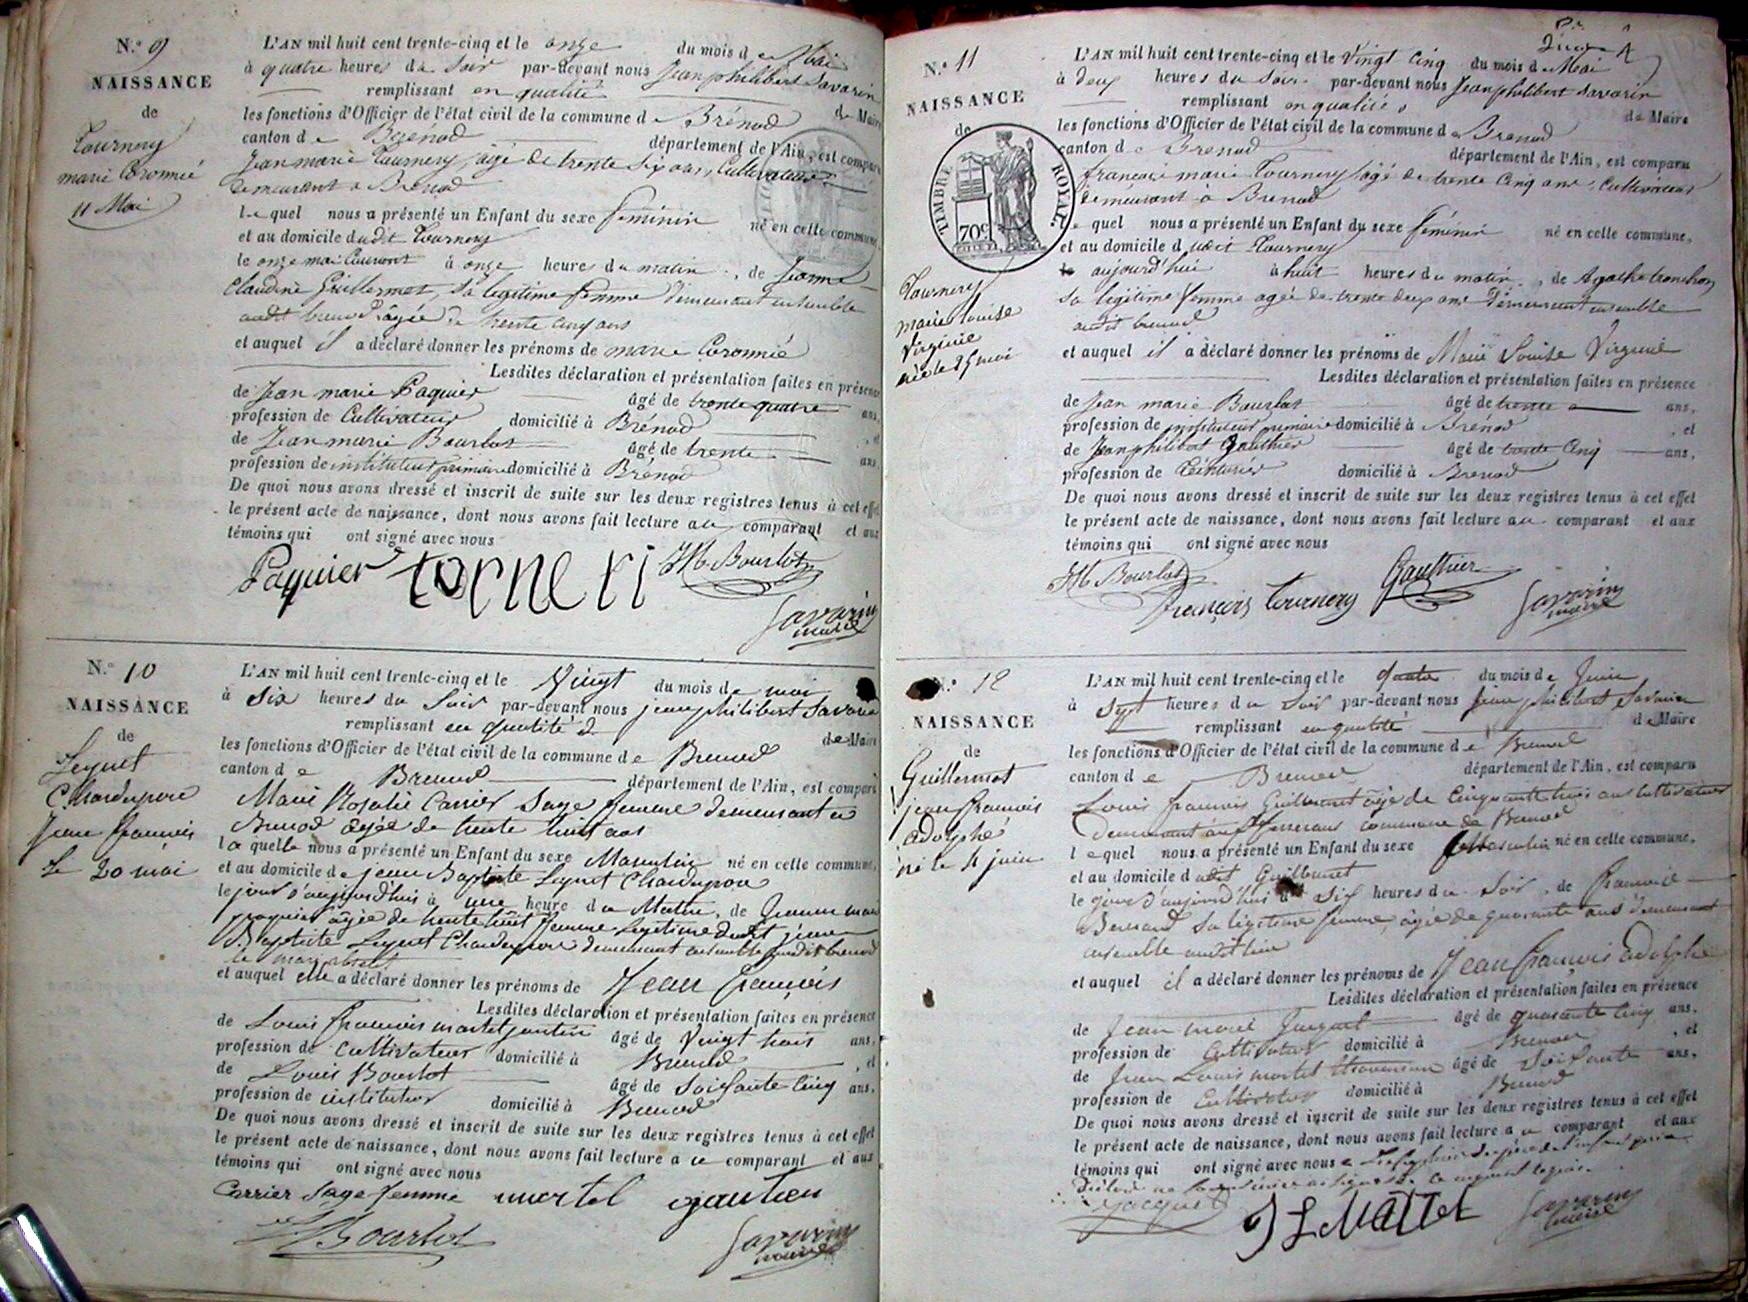 N.º 9
NAISSANCE
de
Tournery
marie Coronnié
11 Mai
L'AN mil huit cent trente-cinq et le onze du mois de Mai
à quatre heures du Soir par-devant nous Jean philibert Savarin
remplissant en qualité de Maire
les fonctions d'Officier de l'état civil de la commune de Brénod
canton de Brénod département de l'Ain, est comparu
Jean marie Tournery âgé de trente six ans, Cultivateur
demeurant à Brénod
lequel nous a présenté un Enfant du sexe féminin né en cette commune,
et au domicile dudit Tournery
le onze mai Courant à onze heures du matin, de Jeanne
Claudine Guillermet, sa legitime femme demeurant ensemble
audit brenod âgée de trente cinq ans
et auquel il a déclaré donner les prénoms de marie Coronnié
Lesdites déclaration et présentation faites en présence
de Jean marie Paquier âgé de trente quatre ans,
profession de Cultivateur domicilié à Brénod, et
de Jean marie Bourlot âgé de trente ans,
profession de instituteur primaire domicilié à Brénod
De quoi nous avons dressé et inscrit de suite sur les deux registres tenus à cet effet
le présent acte de naissance, dont nous avons fait lecture au comparant et aux
témoins qui ont signé avec nous
Paquier torneri JM Bourlot
Savarin
maire
N.º 10
NAISSANCE
de
Seynet
Chardeyron
Jean françois
le 20 mai
L'AN mil huit cent trente-cinq et le Vingt du mois de mai
à Six heures du Soir par-devant nous jean philibert Savarin
remplissant en qualité de Maire
les fonctions d'Officier de l'état civil de la commune de Brenod
canton de Brenod département de l'Ain, est comparu
Marie Rosalie Carrier Sage femme demeurant a
Brenod âgée de trente huit ans
laquelle nous a présenté un Enfant du sexe Masculin né en cette commune,
et au domicile de jean Baptiste Seynet Chardeyron
le jour d'aujourd'hui à une heure du Matin, de Jeanne marie
paquier âgée de trente huit femme Legitime dudit jean
Baptiste Seynet Chardeyron demeurant ensemble audit brenod
le mari absent
et auquel elle a déclaré donner les prénoms de Jean françois
Lesdites déclaration et présentation faites en présence
de Louis françois martel jantien âgé de Vingt trois ans,
profession de cultivateur domicilié à Brenod, et
de Louis Bourlot âgé de Soixante Cinq ans,
profession de instituteur domicilié à Brenod
De quoi nous avons dressé et inscrit de suite sur les deux registres tenus à cet effet
le présent acte de naissance, dont nous avons fait lecture a ce comparant et aux
témoins qui ont signé avec nous
Carrier Sage femme martel
Bourlot Savarin
maire
N.º 11
NAISSANCE
de
TIMBRE ROYAL
70c
Tournery
marie Louise
Virginie
née le 25 mai
L'AN mil huit cent trente-cinq et le Vingt Cinq du mois de Mai
à deux heures du Soir par-devant nous Jean philibert Savarin
remplissant en qualité de Maire
les fonctions d'Officier de l'état civil de la commune de Brenod
canton de Brenod département de l'Ain, est comparu
françois marie Tournery âgé de trente Cinq ans, Cultivateur
demeurant à Brenod
lequel nous a présenté un Enfant du sexe féminin né en cette commune,
et au domicile dudit Tournery
le aujourd'hui à huit heures du matin, de Agathe tronchon
sa legitime femme agée de trente deux ans demeurant ensemble
audit brenod
et auquel il a déclaré donner les prénoms de Marie Louise Virginie
Lesdites déclaration et présentation faites en présence
de Jean marie Bourlot âgé de trente ans,
profession de instituteur primaire domicilié à Brénod, et
de Jean philibert Gauthier âgé de trente Cinq ans,
profession de Teinturier domicilié à Brenod
De quoi nous avons dressé et inscrit de suite sur les deux registres tenus à cet effet
le présent acte de naissance, dont nous avons fait lecture au comparant et aux
témoins qui ont signé avec nous
JM Bourlot Gauthier
françois tournery Savarin
maire
N.º 12
NAISSANCE
de
Guillermet
jean françois
adolphe
né le 4 juin
L'AN mil huit cent trente-cinq et le quatre du mois de Juin
à Sept heures du Soir par-devant nous jean philibert Savarin
remplissant en qualité de Maire
les fonctions d'Officier de l'état civil de la commune de Brenod
canton de Brenod département de l'Ain, est comparu
Louis françois Guillermet âgé de Cinquante trois ans Cultivateur
demeurant commune de Brenod
lequel nous a présenté un Enfant du sexe Masculin né en cette commune,
et au domicile dudit Guillermet
le jour d'aujourd'hui à Six heures du Soir, de françoise
Bernard Sa legitime femme, âgée de quarante ans demeurant
ensemble audit lieu
et auquel il a déclaré donner les prénoms de Jean françois adolphe
Lesdites déclaration et présentation faites en présence
de Jean marie Jacquet âgé de quarante Cinq ans,
profession de Cultivateur domicilié à Brenod, et
de Jean Louis martel âgé de Soixante ans,
profession de Cultivateur domicilié à Brenod
De quoi nous avons dressé et inscrit de suite sur les deux registres tenus à cet effet
le présent acte de naissance, dont nous avons fait lecture au comparant et aux
témoins qui ont signé avec nous
Jacquet J L Martel Savarin
maire